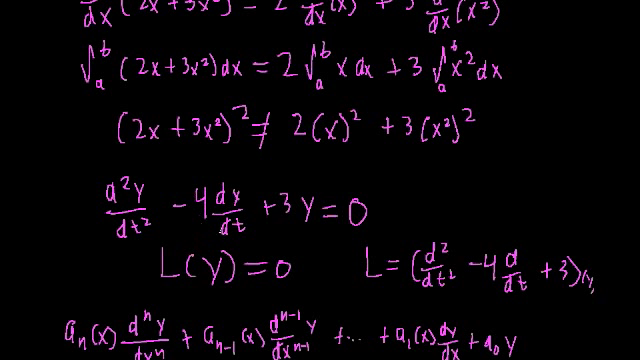 d/dx (2x + 3x²) = 2 d/dx (x) + 3 d/dx (x²)
∫_a^b (2x + 3x²) dx = 2 ∫_a^b x dx + 3 ∫_a^b x² dx
(2x + 3x²)² ≠ 2(x)² + 3(x²)²
d²y/dt² - 4 dy/dt + 3y = 0
L(y) = 0 L = (d²/dt² - 4 d/dt + 3)(y)
aₙ(x) dⁿy/dxⁿ + aₙ₋₁(x) dⁿ⁻¹y/dxⁿ⁻¹ + ... + a₁(x) dy/dx + a₀ y